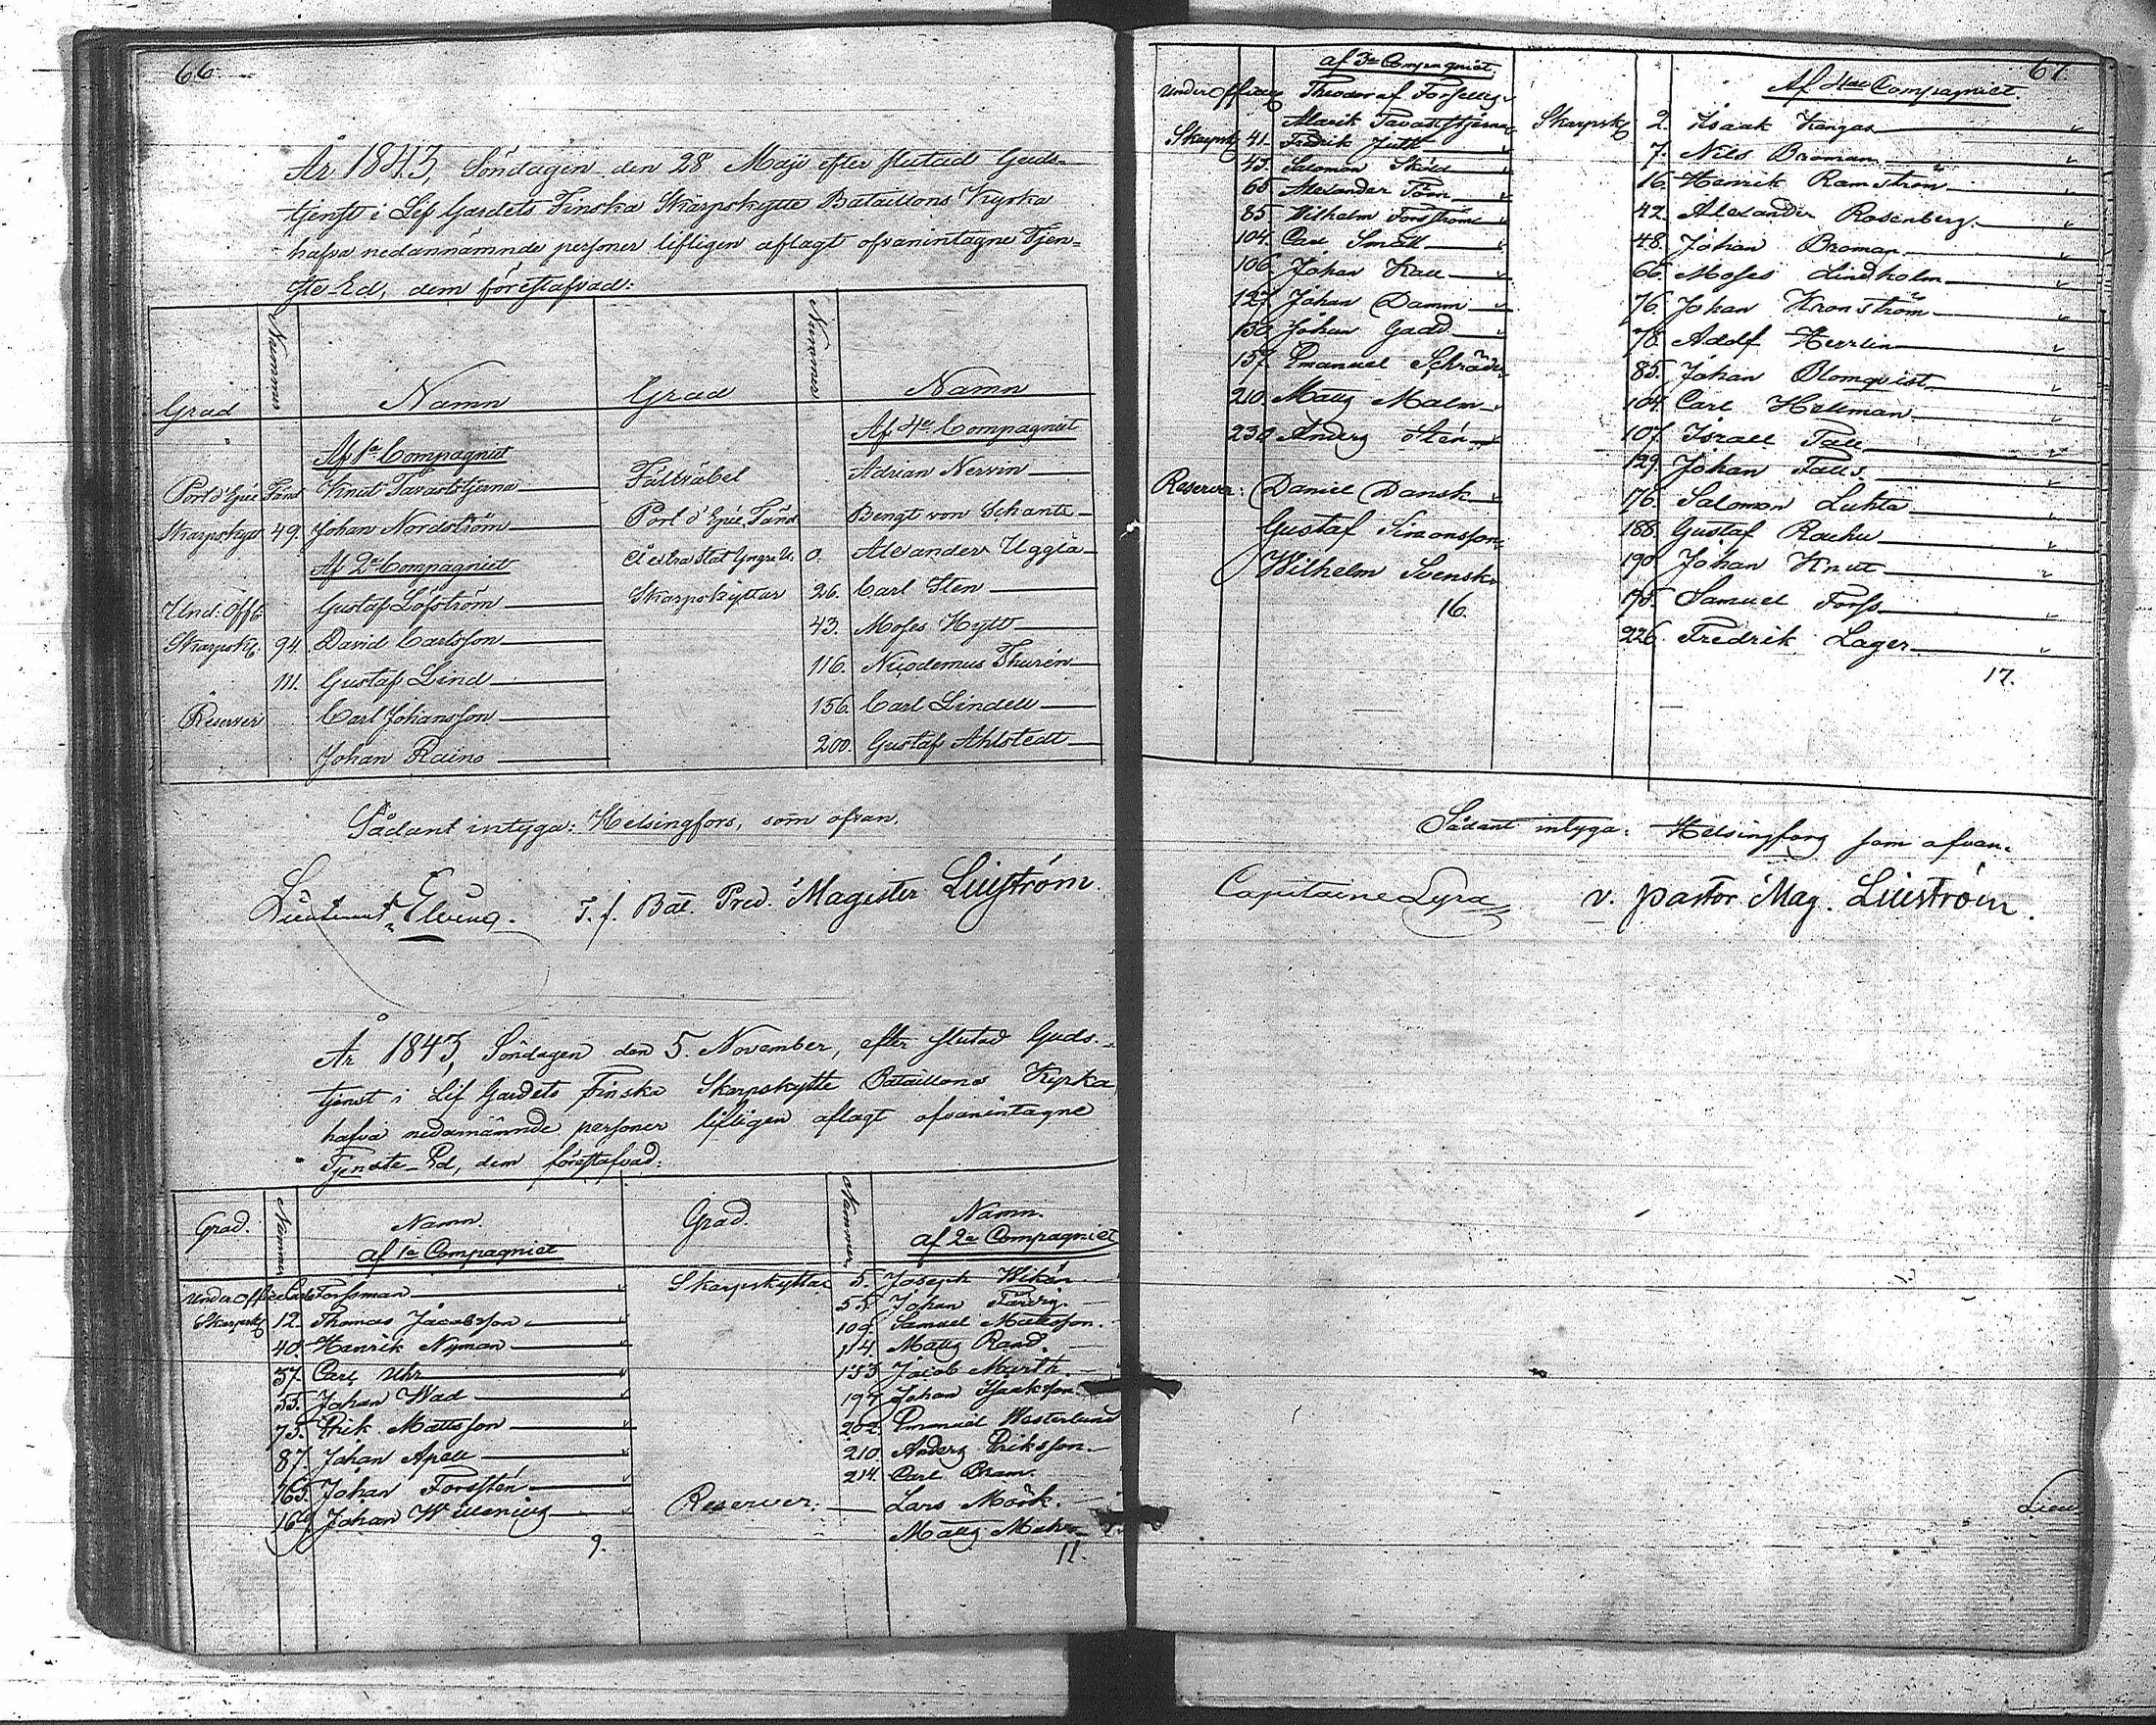 66.
År 1843, Söndagen den 28 Maji efter slutad Guds-
tjenst i Lif Gardets Finska Skarpskytte Bataillons Kyrka
hafva nedannämnde personer lifligen aflagt ofvanintagne Tjen-
ste-Ed, dem förestafvad:
Grad Nummer Namn
Af 1a Compagniet
Port d'Epée Fänd Knut Tavaststjerna
Skarpskytt 49. Johan Nordström
Af 2a Compagniet
Und. Off. Gustaf Löfström
Skarpsk. 94 David Carlsson
111. Gustaf Lind
Reserver Carl Johansson
Johan Raino
Grad Nummer Namn
Af 4e Compagniet
Fältväbel Adrian Nervin
Port d'Epée Fänd Bengt von Schantz
Alexander Uggla
Skarpskyttar 26. Carl Sten
43. Moses Hytt
116. Nicodemus Thurén
156. Carl Lindell
200. Gustaf Ahlstedt
Sådant intyga: Helsingfors, som ofvan.
Lieutenant Elving. T. f. Bat. Pred. Magister Liliström.
År 1843, Söndagen den 5. November, efter slutad Guds-
tjenst i Lif Gardets Finska Skarpskytte Bataillons Kyrka
hafva nedannämnde personer lifligen aflagt ofvanintagne
Tjenste-Ed, dem förestafvad:
Grad. Nummer Namn.
af 1a Compagniet
Under Officer Forssman
Skarpsk 12. Thomas Jacobsson
40. Henrik Nyman
37. Carl Uhr
55. Johan Wad
73. Erik Mattsson
87. Johan Apell
165. Johan Forstén
169. Johan Willenius
9.
Grad. Nummer Namn.
af 2a Compagniet
Skarpskyttar 5. Joseph Wikén
55. Johan Färdig.
109. Samuel Mattsson.
114. Matts Rand.
153. Jacob Marth.
197. Johan Isaksson.
202. Emanuel Westerlund
210. Anders Eriksson.
214. Carl Bram.
Reserver: Lars Mörk.
Matts
11.
67.
af 3e Compagniet
Under Officer Theodor af Forselles
Alarik Tavaststjerna
Skarpsk 41. Fredrik Jutt
43. Salomon Sköld
65 Alexander Törn
85. Wilhelm Forsström
104. Carl Småll
106. Johan Kall
127. Johan Damm
130. Johan Gadd
157. Emanuel Schröder
210. Matts Malm
230. Anders Stén
Reserver: Daniel Dansk
Gustaf Simonsson
Wilhelm Svensk
16.
Af 4de Compagniet.
Skarpsk 2. Isaak Kangas
7. Nils Broman
16. Henrik Ramström
42. Alexander Rosenberg.
48. Johan Broman
66. Moses Lindholm
76. Johan Kronström
78. Adolf Herrlin
85. Johan Blomqvist
104. Carl Hallman
107. Israel Tall
129. Johan Falls
176. Salomon Luhta
188. Gustaf Rachu
190. Johan Knut
195. Samuel Forss
226. Fredrik Lager
17.
Sådant intyga. Helsingfors som ofvan.
Capitaine Lyra v. pastor Mag. Liliström.
Lieu